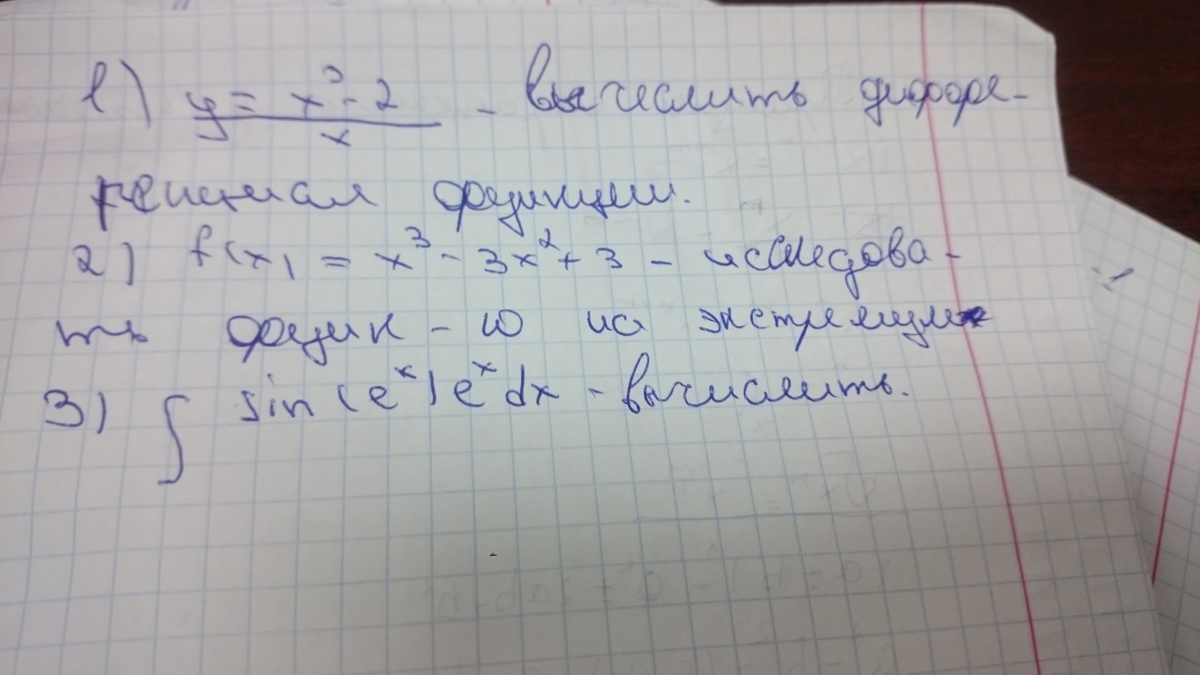 1) y = x³ - 2 / x - вычислить диффре-
ренциал функции.
2) f(x) = x³ - 3x² + 3 - исследова-
ть функ-ю на экстремум
3) ∫ sin(eˣ)eˣdx - вычислить.